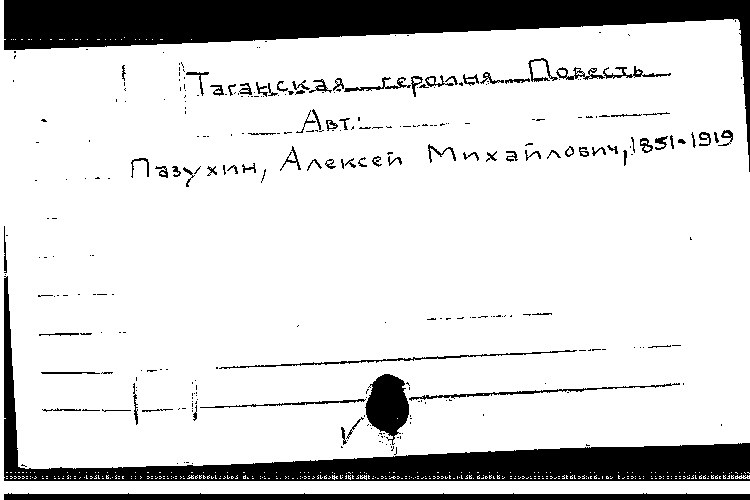 Таганская героиня Повесть
Авт.:
Пазухин, Алексей Михайлович, 1851-1919